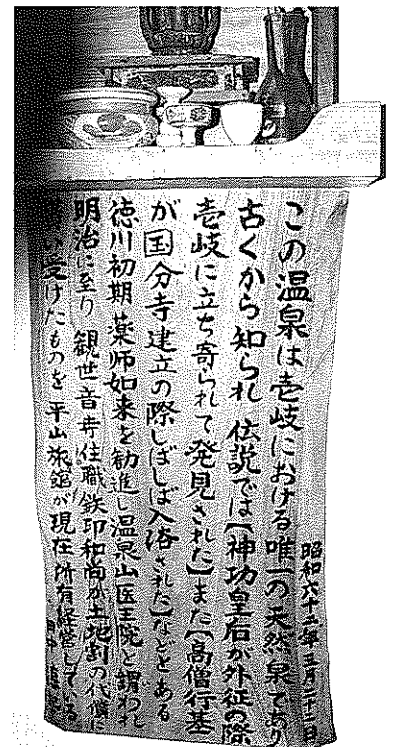 昭和六十 年五月二十二日
この温泉は壱岐における唯一の天然泉であり
古くから知られ 伝説では【神功皇后が外征の際
壱岐に立ち寄られて発見された】また【高僧行基
が国分寺建立の際しばしば入浴された】などとある
徳川初期薬師如来を勧進し温泉山医王院と謂われ
明治に至り 観世音寺住職鉄印和尚が土地割の代償に
い受けたものを 平山旅館が現在所有経営している